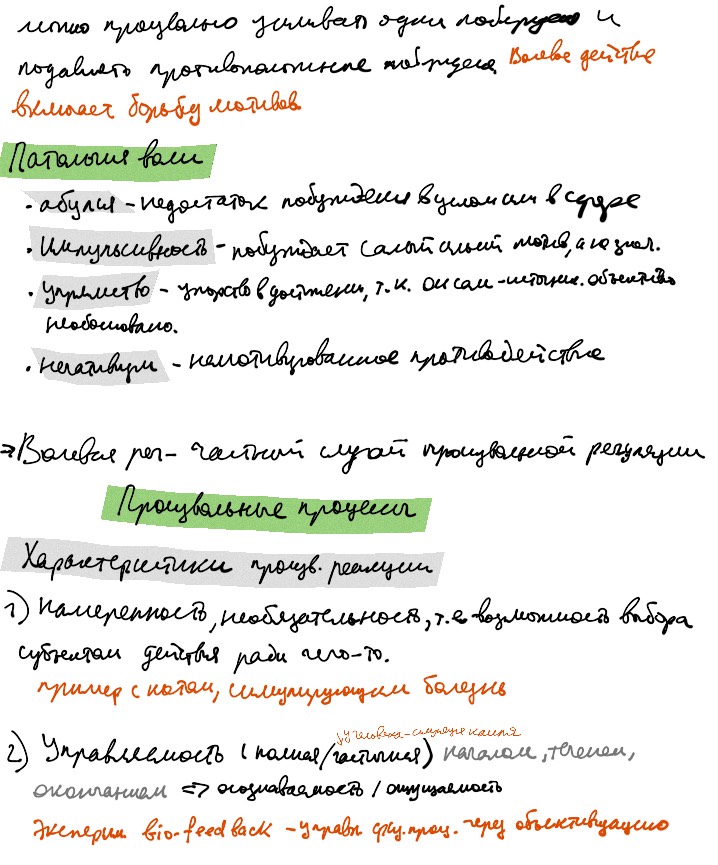 можно произвольно усиливать одни побуждения и
подавлять противоположные побуждения. Волевое действие
включает борьбу мотивов.
Патология воли
· абулия - недостаток побуждения в условиям в сфере
· Импульсивность - побуждает самый сильный мотив, а не знач.
· упрямство - упорство в достижении, т.к. он сам - источник. объективно
необосновано.
· негативизм - немотивированное противодействие
⇒ Волевая рег - частный случай произвольной регуляции
Произвольные процессы
Характеристики произв. реакции
1) Намеренность, необязательность, т.е. возможность выбора
субъектом действия ради чего-то.
пример с котом, симулирующим болезнь
у человека - симуляция кашля
2) Управляемость (полная/частичная) началом, течением,
окончанием => осознаваемость / ощущаемость
Эксперим bio-feedback - управл физ. проц. через объективизацию